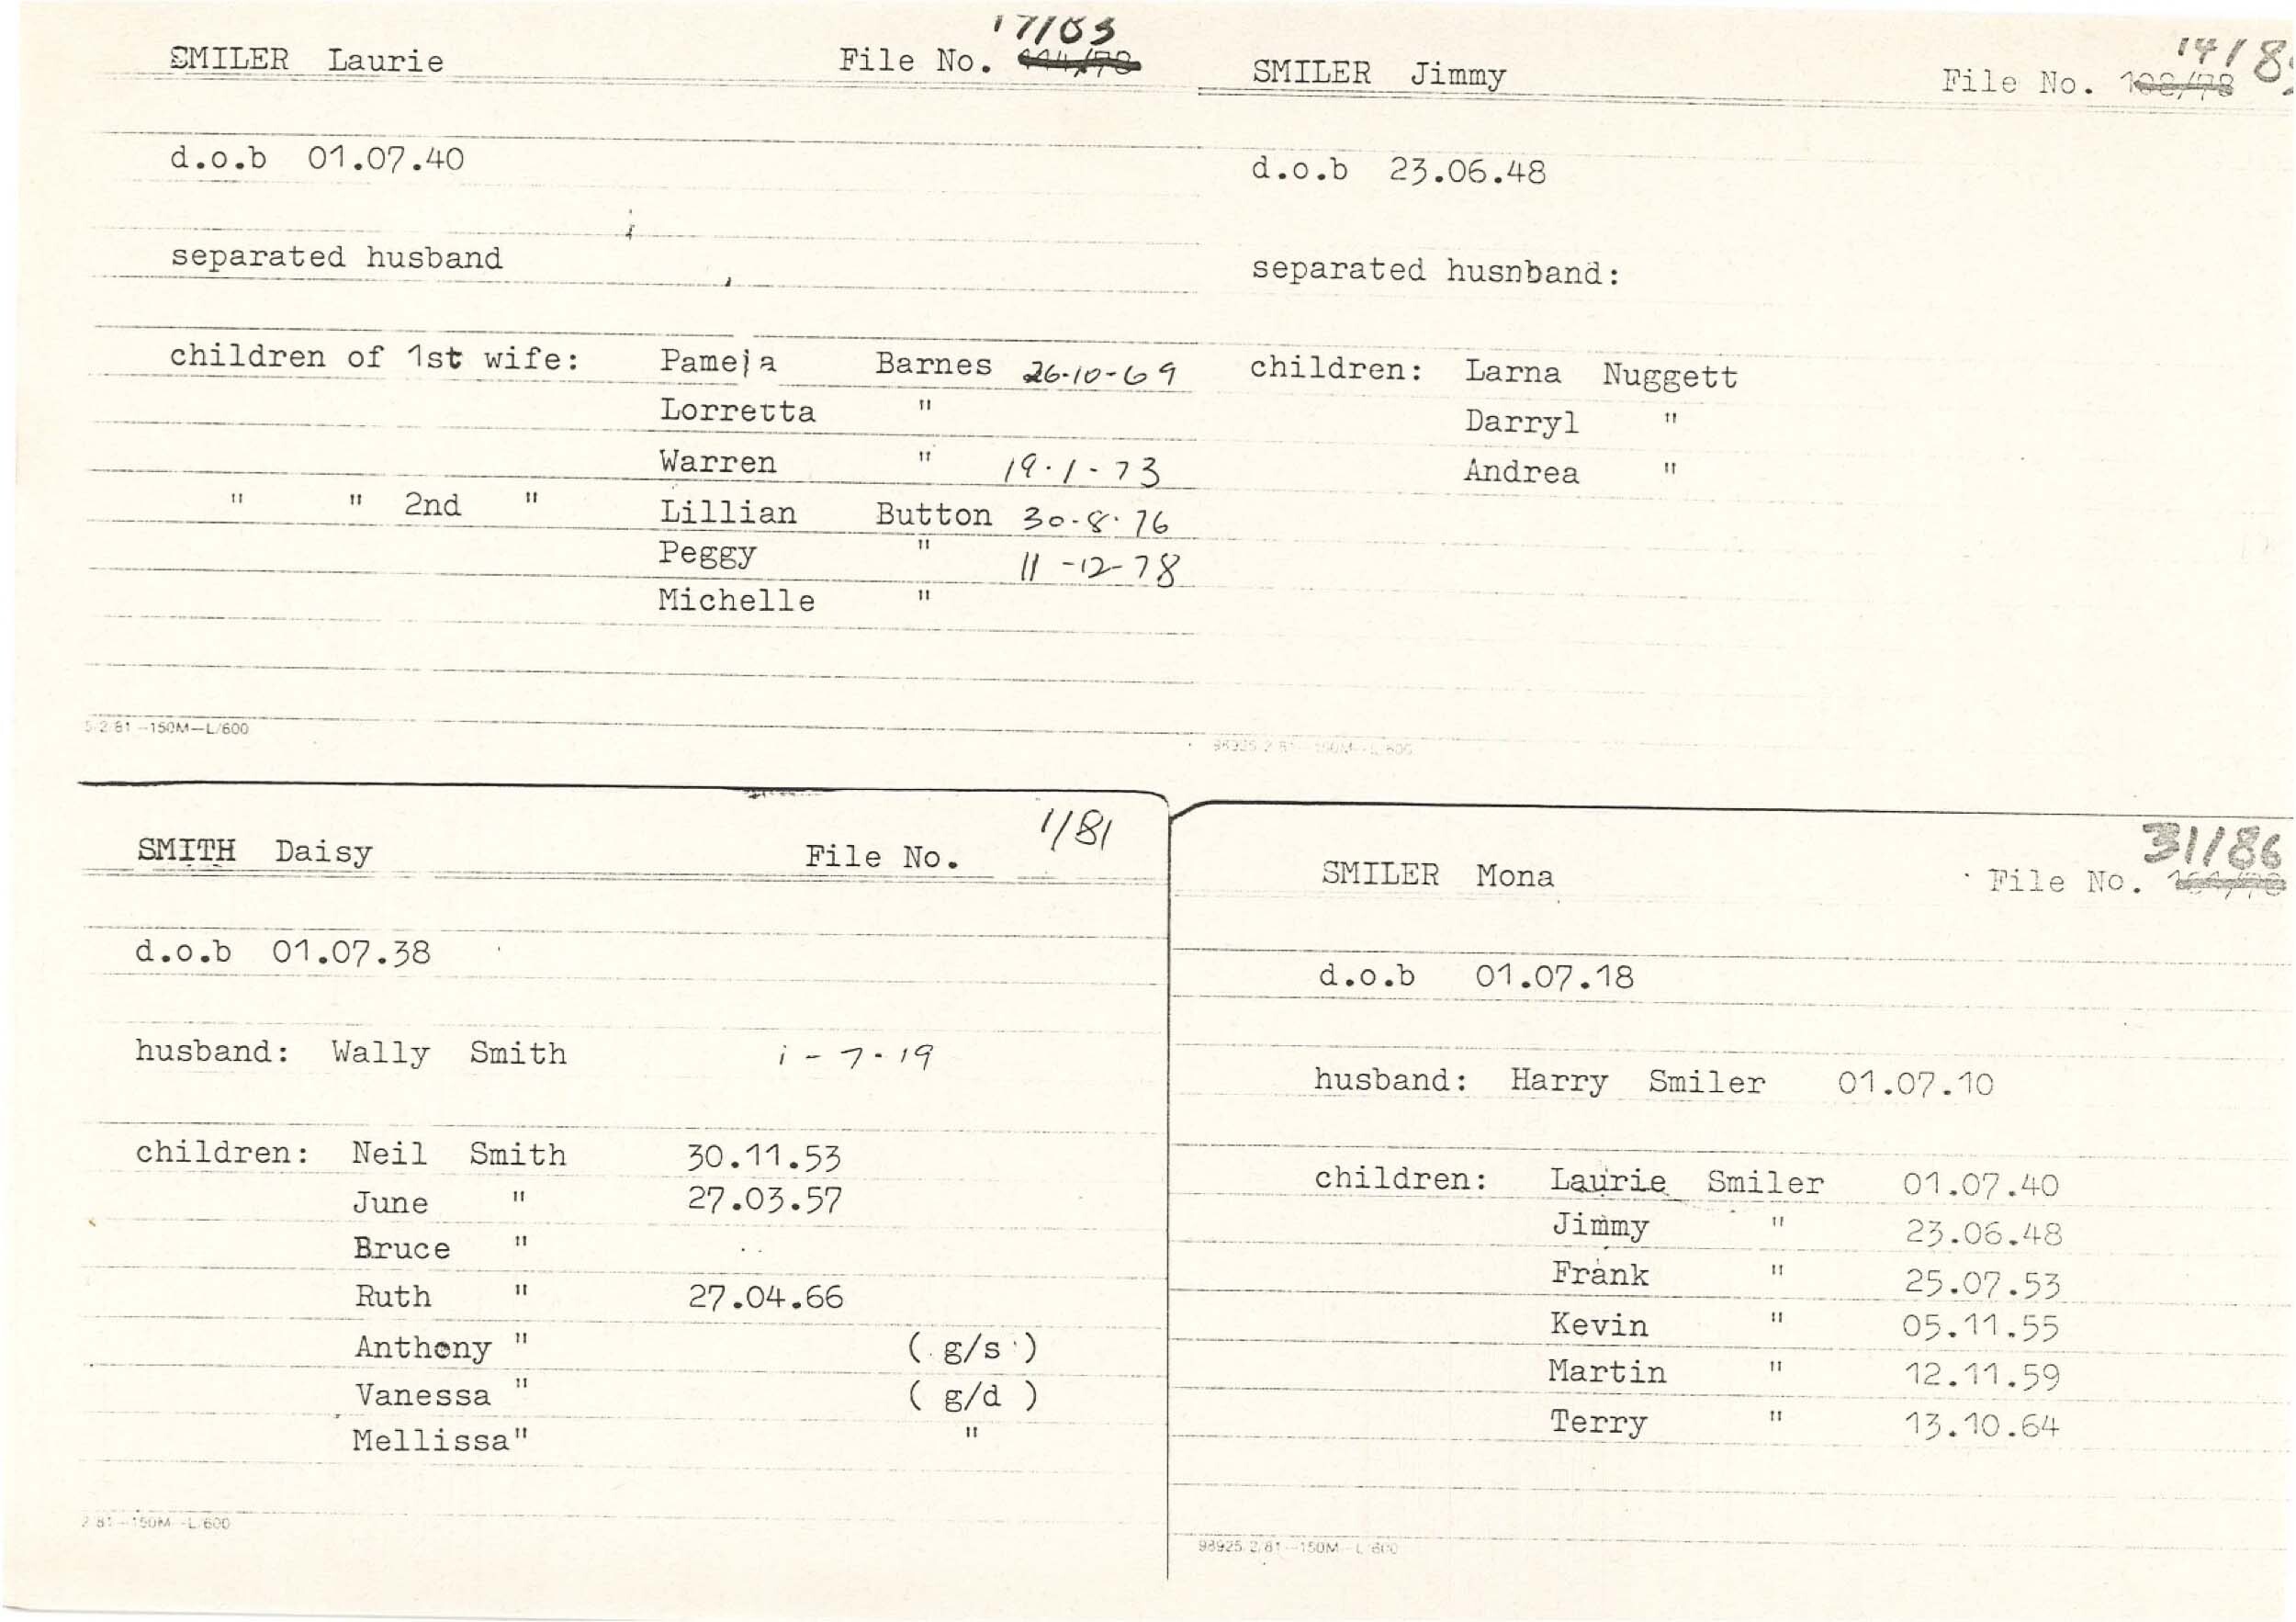 17/83
SMILER Laurie File No. 114/78
d.o.b 01.07.40
separated husband
children of 1st wife: Pamela Barnes 26-10-69
Lorretta "
Warren " 19.1-73
" " 2nd " Lillian Button 30.8.76
Peggy " 11-12-78
Michelle "
5/2/81 -150M-L/600
14/8
SMILER Jimmy File No. 108/78
d.o.b 23.06.48
separated husnband:
children: Larna Nuggett
Darryl "
Andrea "
98925/2/81 -150M-L/600
1/81
SMITH Daisy File No.
d.o.b 01.07.38
husband: Wally Smith 1-7-19
children: Neil Smith 30.11.53
June " 27.03.57
Bruce "
Ruth " 27.04.66
Anthony " ( g/s )
Vanessa " ( g/d )
Mellissa" "
2/81 -150M-L/600
31/86
SMILER Mona File No.
d.o.b 01.07.18
husband: Harry Smiler 01.07.10
children: Laurie Smiler 01.07.40
Jimmy " 23.06.48
Frank " 25.07.53
Kevin " 05.11.55
Martin " 12.11.59
Terry " 13.10.64
98925/2/81 -150M-L/600